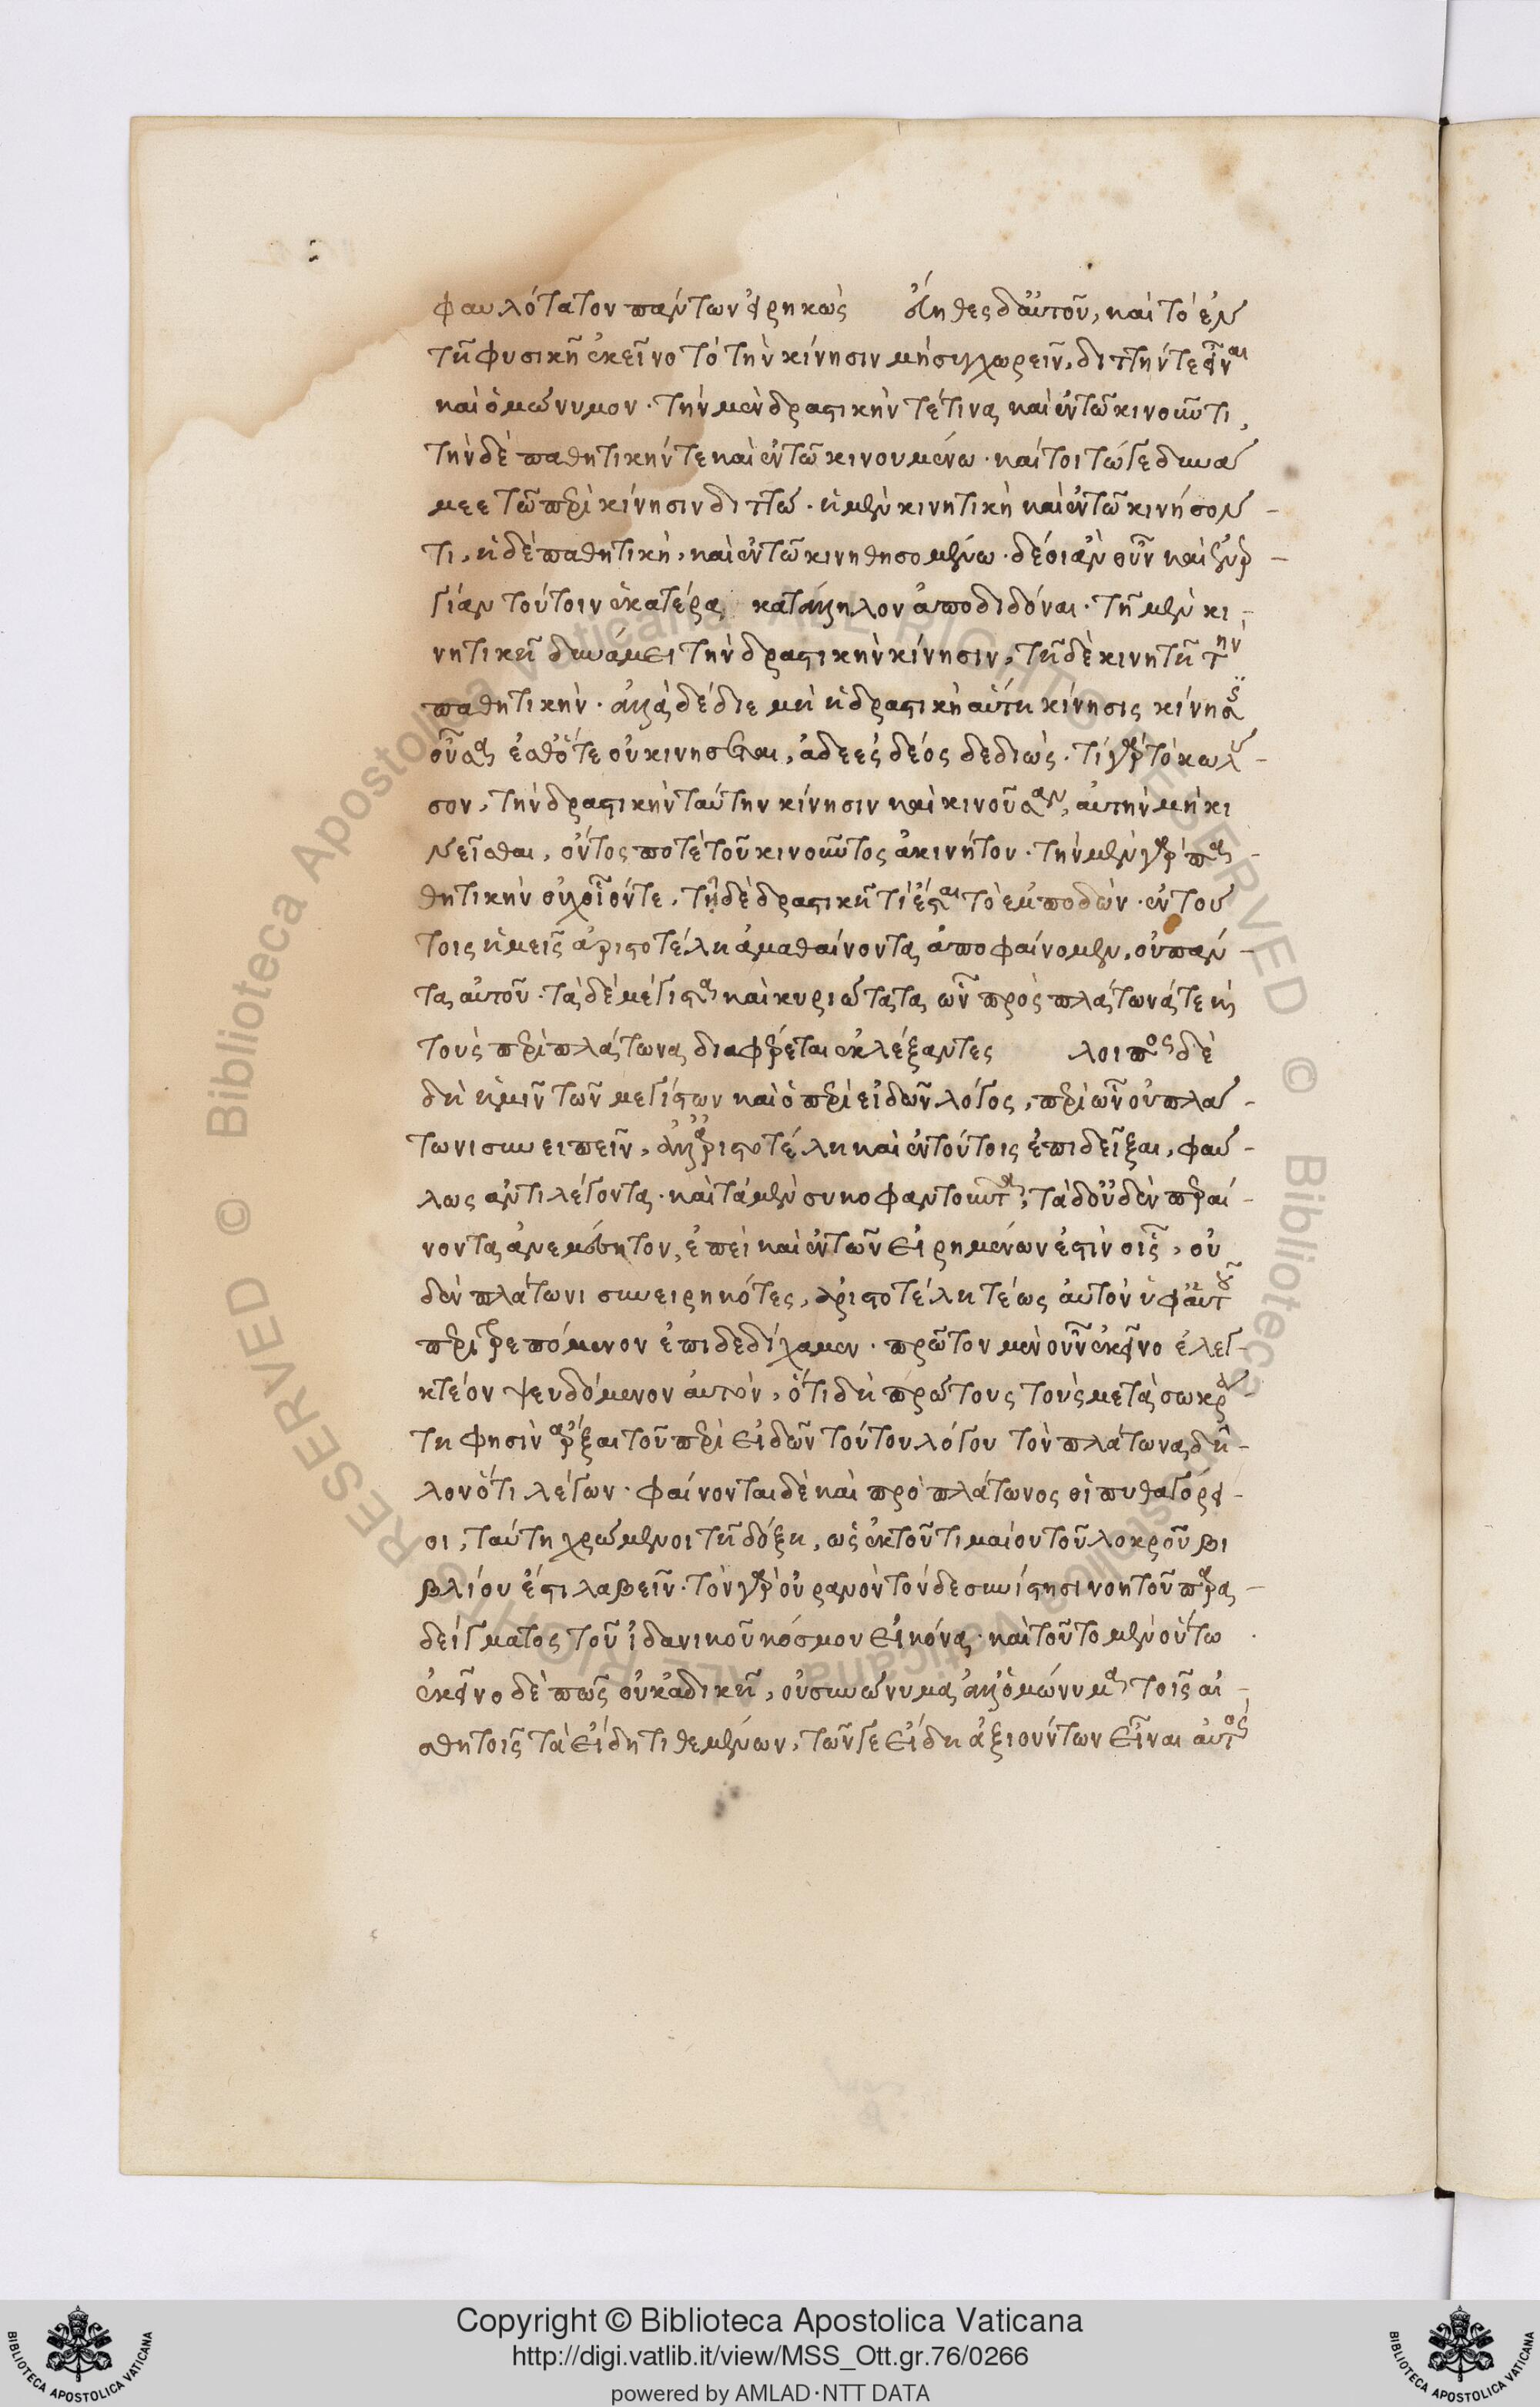 φαυλότατον πάντων εἰρηκώς εὔηθες δ' αὐτοῦ, καὶ τὸ ἐν
τῇ φυσικῇ ἐκεῖνο τὸ τὴν κίνησιν μὴ συγχωρεῖν, διττήν τε εἶναι
καὶ ὁμώνυμον · τὴν μὲν δραστικήν τέ τινα καὶ ἐν τῷ κινοῦντι,
τὴν δὲ παθητικήν τε καὶ ἐν τῷ κινουμένῳ · καίτοι τώ γε δυνά
μεε τὼ περὶ κίνησιν διττώ · ἡ μὲν κινητικὴ καὶ ἐν τῷ κινήσον -
τι, ἡ δὲ παθητική, καὶ ἐν τῷ κινηθησομένῳ · δέοι ἂν οὖν καὶ ἐνέρ -
γίαν τούτοιν ἑκατέρᾳ κατάλληλον ἀποδιδόναι · τῇ μὲν κι -
νητικῇ δυνάμει τὴν δραστικὴν κίνησιν, τῇ δὲ κινητῇ τὴν
παθητικήν · ἀλλὰ δέδιε μὴ ἡ δραστικὴ αὕτη κίνησις κίνησις
οὖσα ἔσθ' ὅτε οὐ κινῆσεται, ἀδεὲς δέος δεδιώς · τί γὰρ τὸ κωλῦ -
σον, τὴν δραστικὴν ταύτην κίνησιν καὶ κινοῦσαν, αὐτὴν μὴ κι
νεῖσθαι, ὄντος ποτὲ τοῦ κινοῦντος ἀκινήτου · τὴν μὲν γὰρ πα -
θητικὴν οὐχ οἷόν τε, τῇ δὲ δραστικῇ τί ἔσται τὸ ἐμποδών · ἐν τού
τοις ἡμεῖς ἀριστοτέλη ἀμαθαίνοντα ἀποφαίνομεν, οὐ πάν -
τα αὐτοῦ · τὰ δὲ μέγιστα καὶ κυριώτατα ὧν πρὸς πλάτωνά τε καὶ
τοὺς περὶ πλάτωνα διαφέρεται ἐκλέξαντες λοιπὸς δὲ
δὴ ἡμῖν τῶν μεγίστων καὶ ὁ περὶ εἰδῶν λόγος, περὶ ὧν οὐ πλά -
τωνι συνειπεῖν, ἀλλ' ἀριστοτέλη καὶ ἐν τούτοις ἐπιδεῖξαι, φαύ -
λως ἀντιλέγοντα · καὶ τὰ μὲν συκοφαντοῦντα, τὰ δ' οὐδὲν περαί -
νοντα ἀνεμέσητον, ἐπεὶ καὶ ἐν τῶν εἰρημένων ἐστὶν οἷς, οὐ
δὲν πλάτωνι συνειρηκότες, ἀριστοτέλη τέως αὐτὸν ὑφ' αὑτοῦ
περιτρεπόμενον ἐπιδεδίχαμεν · πρῶτον μὲν οὖν ἐκεῖνο ἐλεγ -
κτέον ψευδόμενον αὐτόν, ὅτι δὴ πρώτους τοὺς μετὰ σωκρά -
τη φησὶν ἄρξαι τοῦ περὶ εἰδῶν τούτου λόγου τὸν πλάτωνα δῆ -
λον ὅτι λέγων · φαίνονται δὲ καὶ πρὸ πλάτωνος οἱ πυθαγόρει -
οι, ταύτῃ χρώμενοι τῇ δόξῃ, ὡς ἐκ τοῦ τιμαίου τοῦ λοκροῦ βι
βλίου ἔστι λαβεῖν · τὸν γὰρ οὐρανὸν τόνδε συνίστησι νοητοῦ παρα -
δείγματος τοῦ ἰδανικοῦ κόσμου εἰκόνα · καὶ τοῦτο μὲν οὕτω ·
ἐκεῖνο δὲ πῶς οὐκ ἀδικῇ, οὐ συνώνυμα ἀλλ' ὁμώνυμα τοῖς αἰ -
σθητοῖς τὰ εἴδη τιθεμένων, τῶν γε εἴδη ἀξιούντων εἶναι αὐτὸς
Copyright © Biblioteca Apostolica Vaticana
http://digi.vatlib.it/view/MSS_Ott.gr.76/0266
powered by AMLAD·NTT DATA